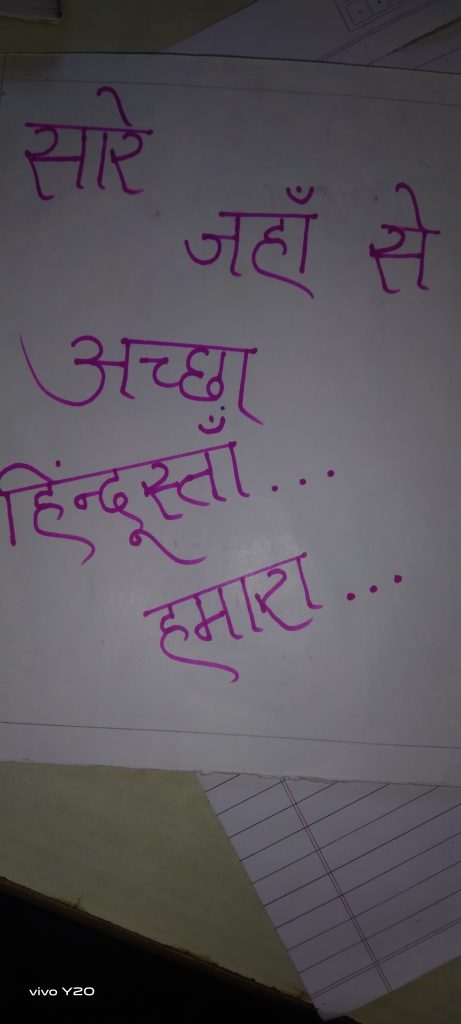 सारे
जहाँ से
अच्छा
हिंन्दूस्ताँ...
हमारा...
vivo Y20